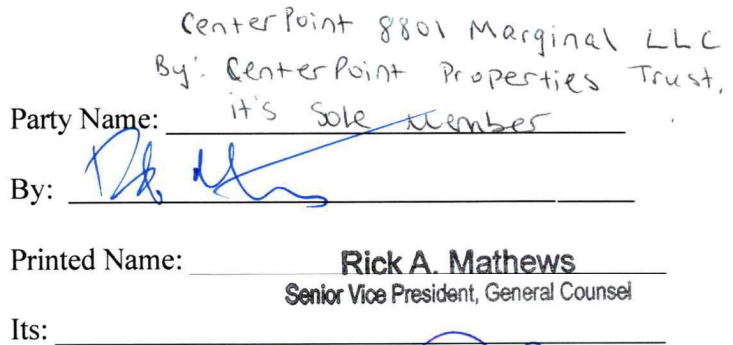 CenterPoint 8801 Marginal LLC
By: CenterPoint Properties Trust,
it's sole member
Party Name:
By:
Printed Name: Rick A. Mathews
Senior Vice President, General Counsel
Its: